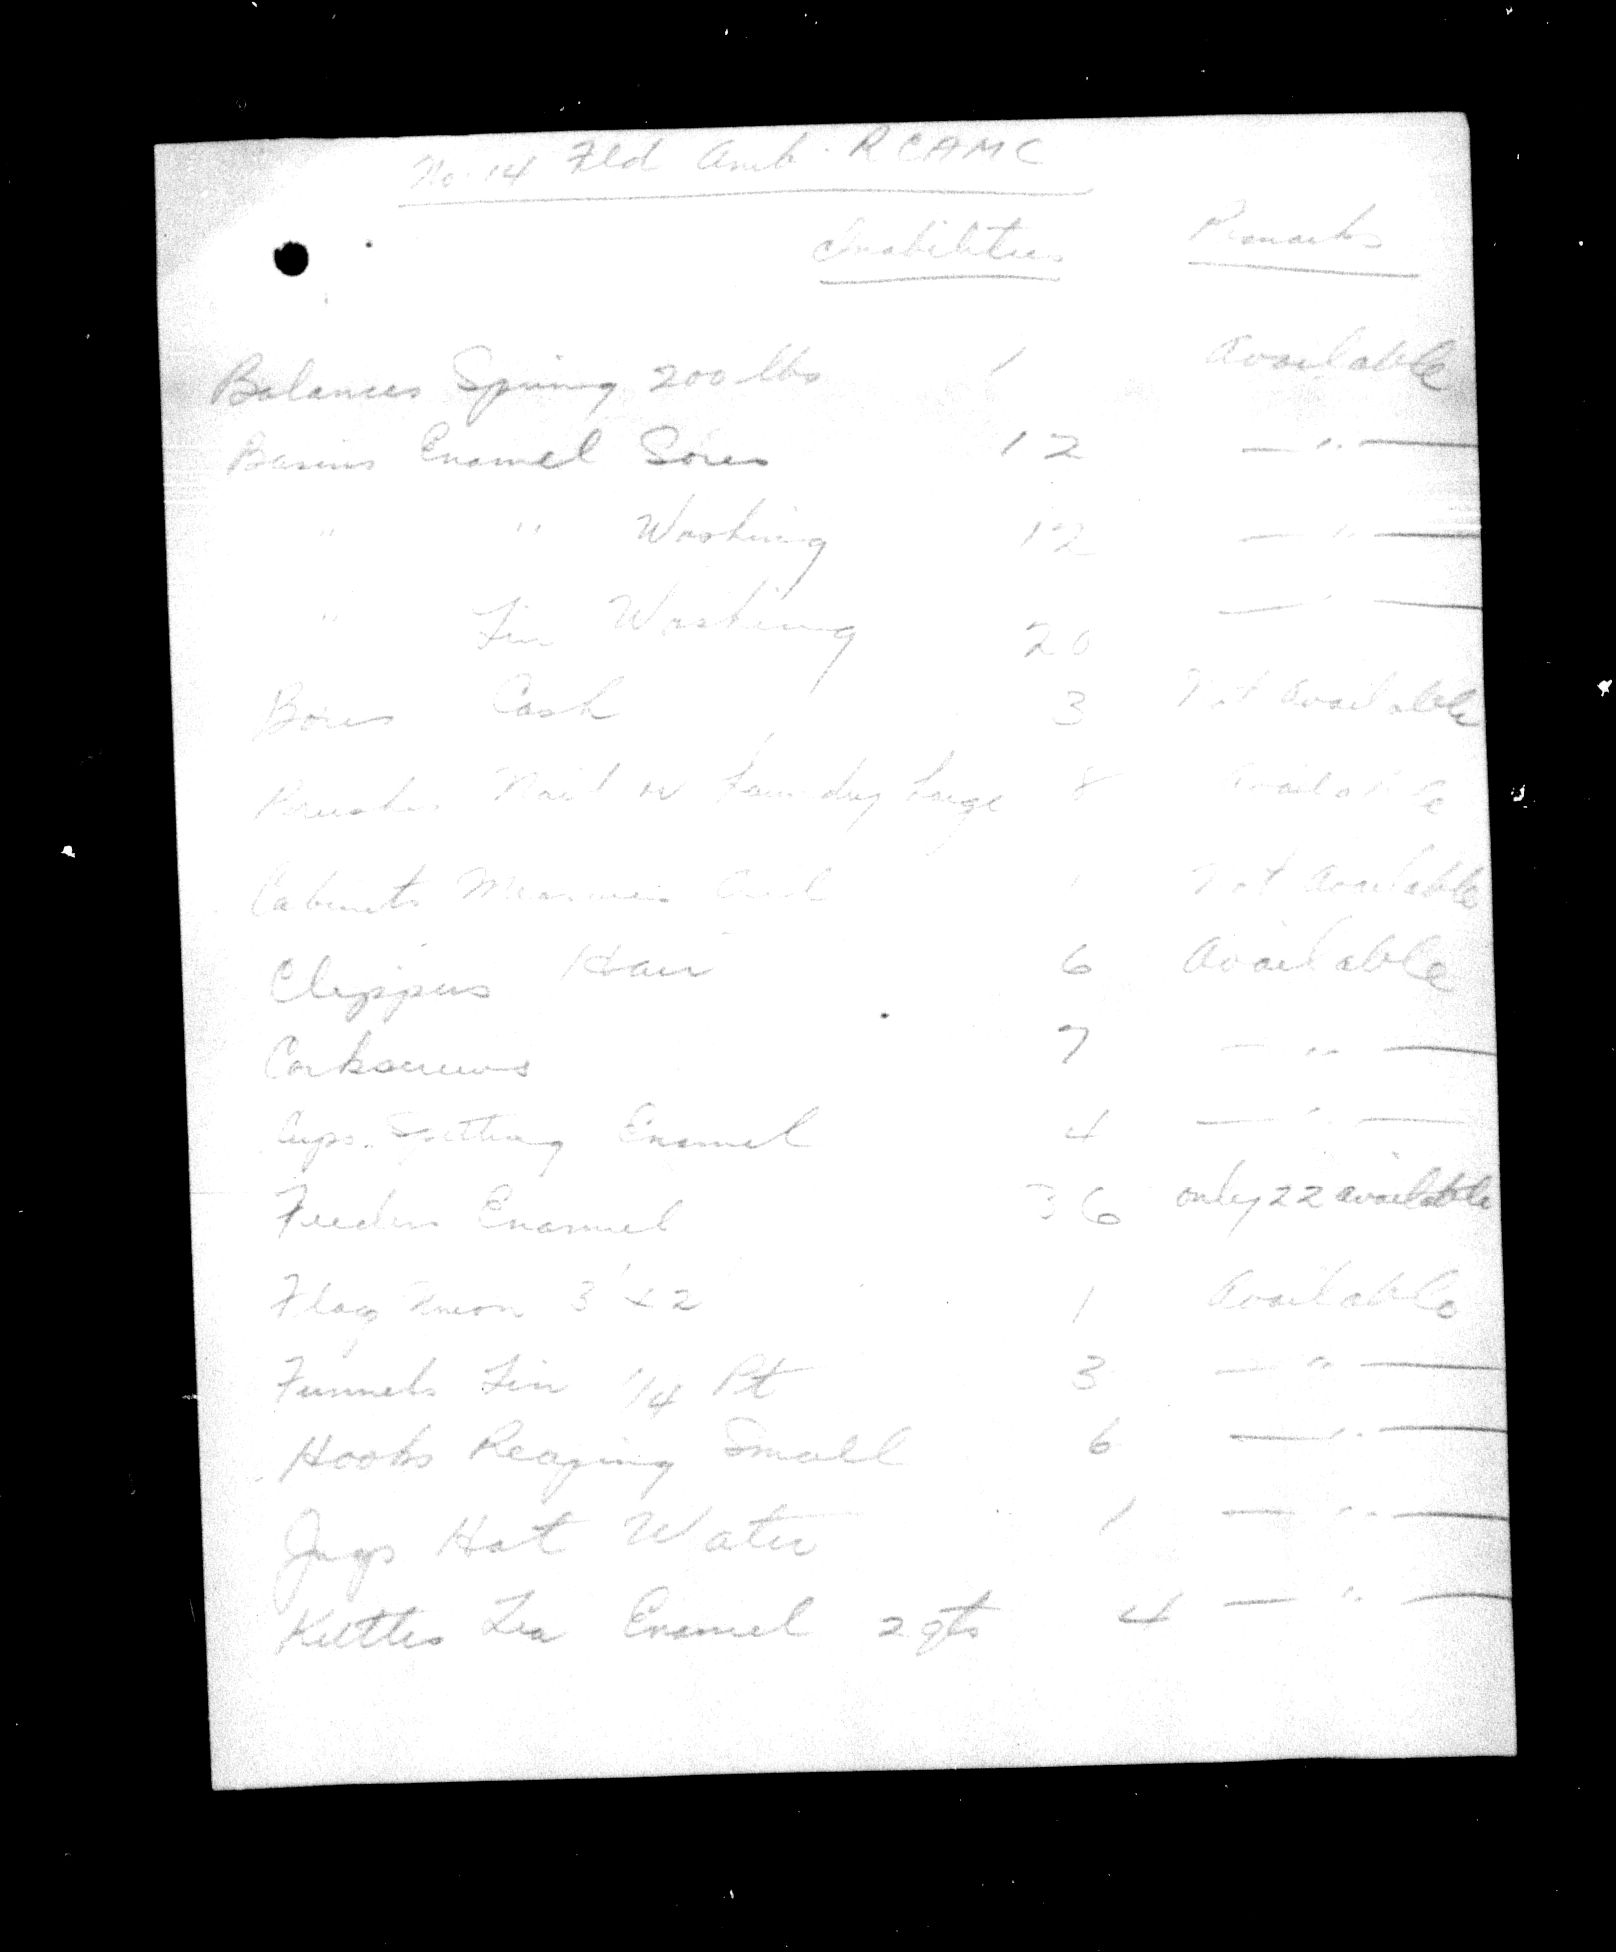 No. 14 Fld Amb. RCAMC
Inabilities Remarks
Balances Spring 200 lbs 1 Available
Basins Enamel Sores 12 — " —
" " Washing 12 — " —
" Tin Washing 20 — " —
Boxes Cash 3 Not Available
Brushes Nail or Laundry Large 8 Available
Cabinets 1 Not Available
Clippers Hair 6 Available
Corkscrews 7 — " —
Cups. Spitting Enamel 4 — " —
Feeders Enamel 36 only 22 available
Flag Union 3' x 2' 1 Available
Funnels Tin 1/4 Pt 3 — " —
Hooks Reaping Small 6 — " —
Jugs Hot Water 1 — " —
Kettles Tea Enamel 2 qts 4 — " —